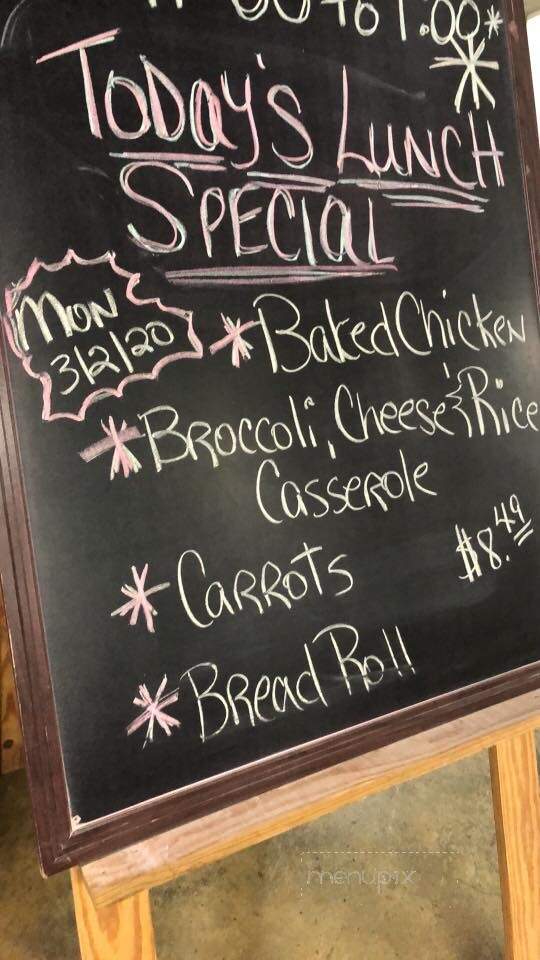 to 1:00*
Today's Lunch
Special
Mon
3/2/20
* Baked Chicken
* Broccoli, Cheese & Rice
Casserole
* Carrots
$8.49
* Bread Roll
menupix